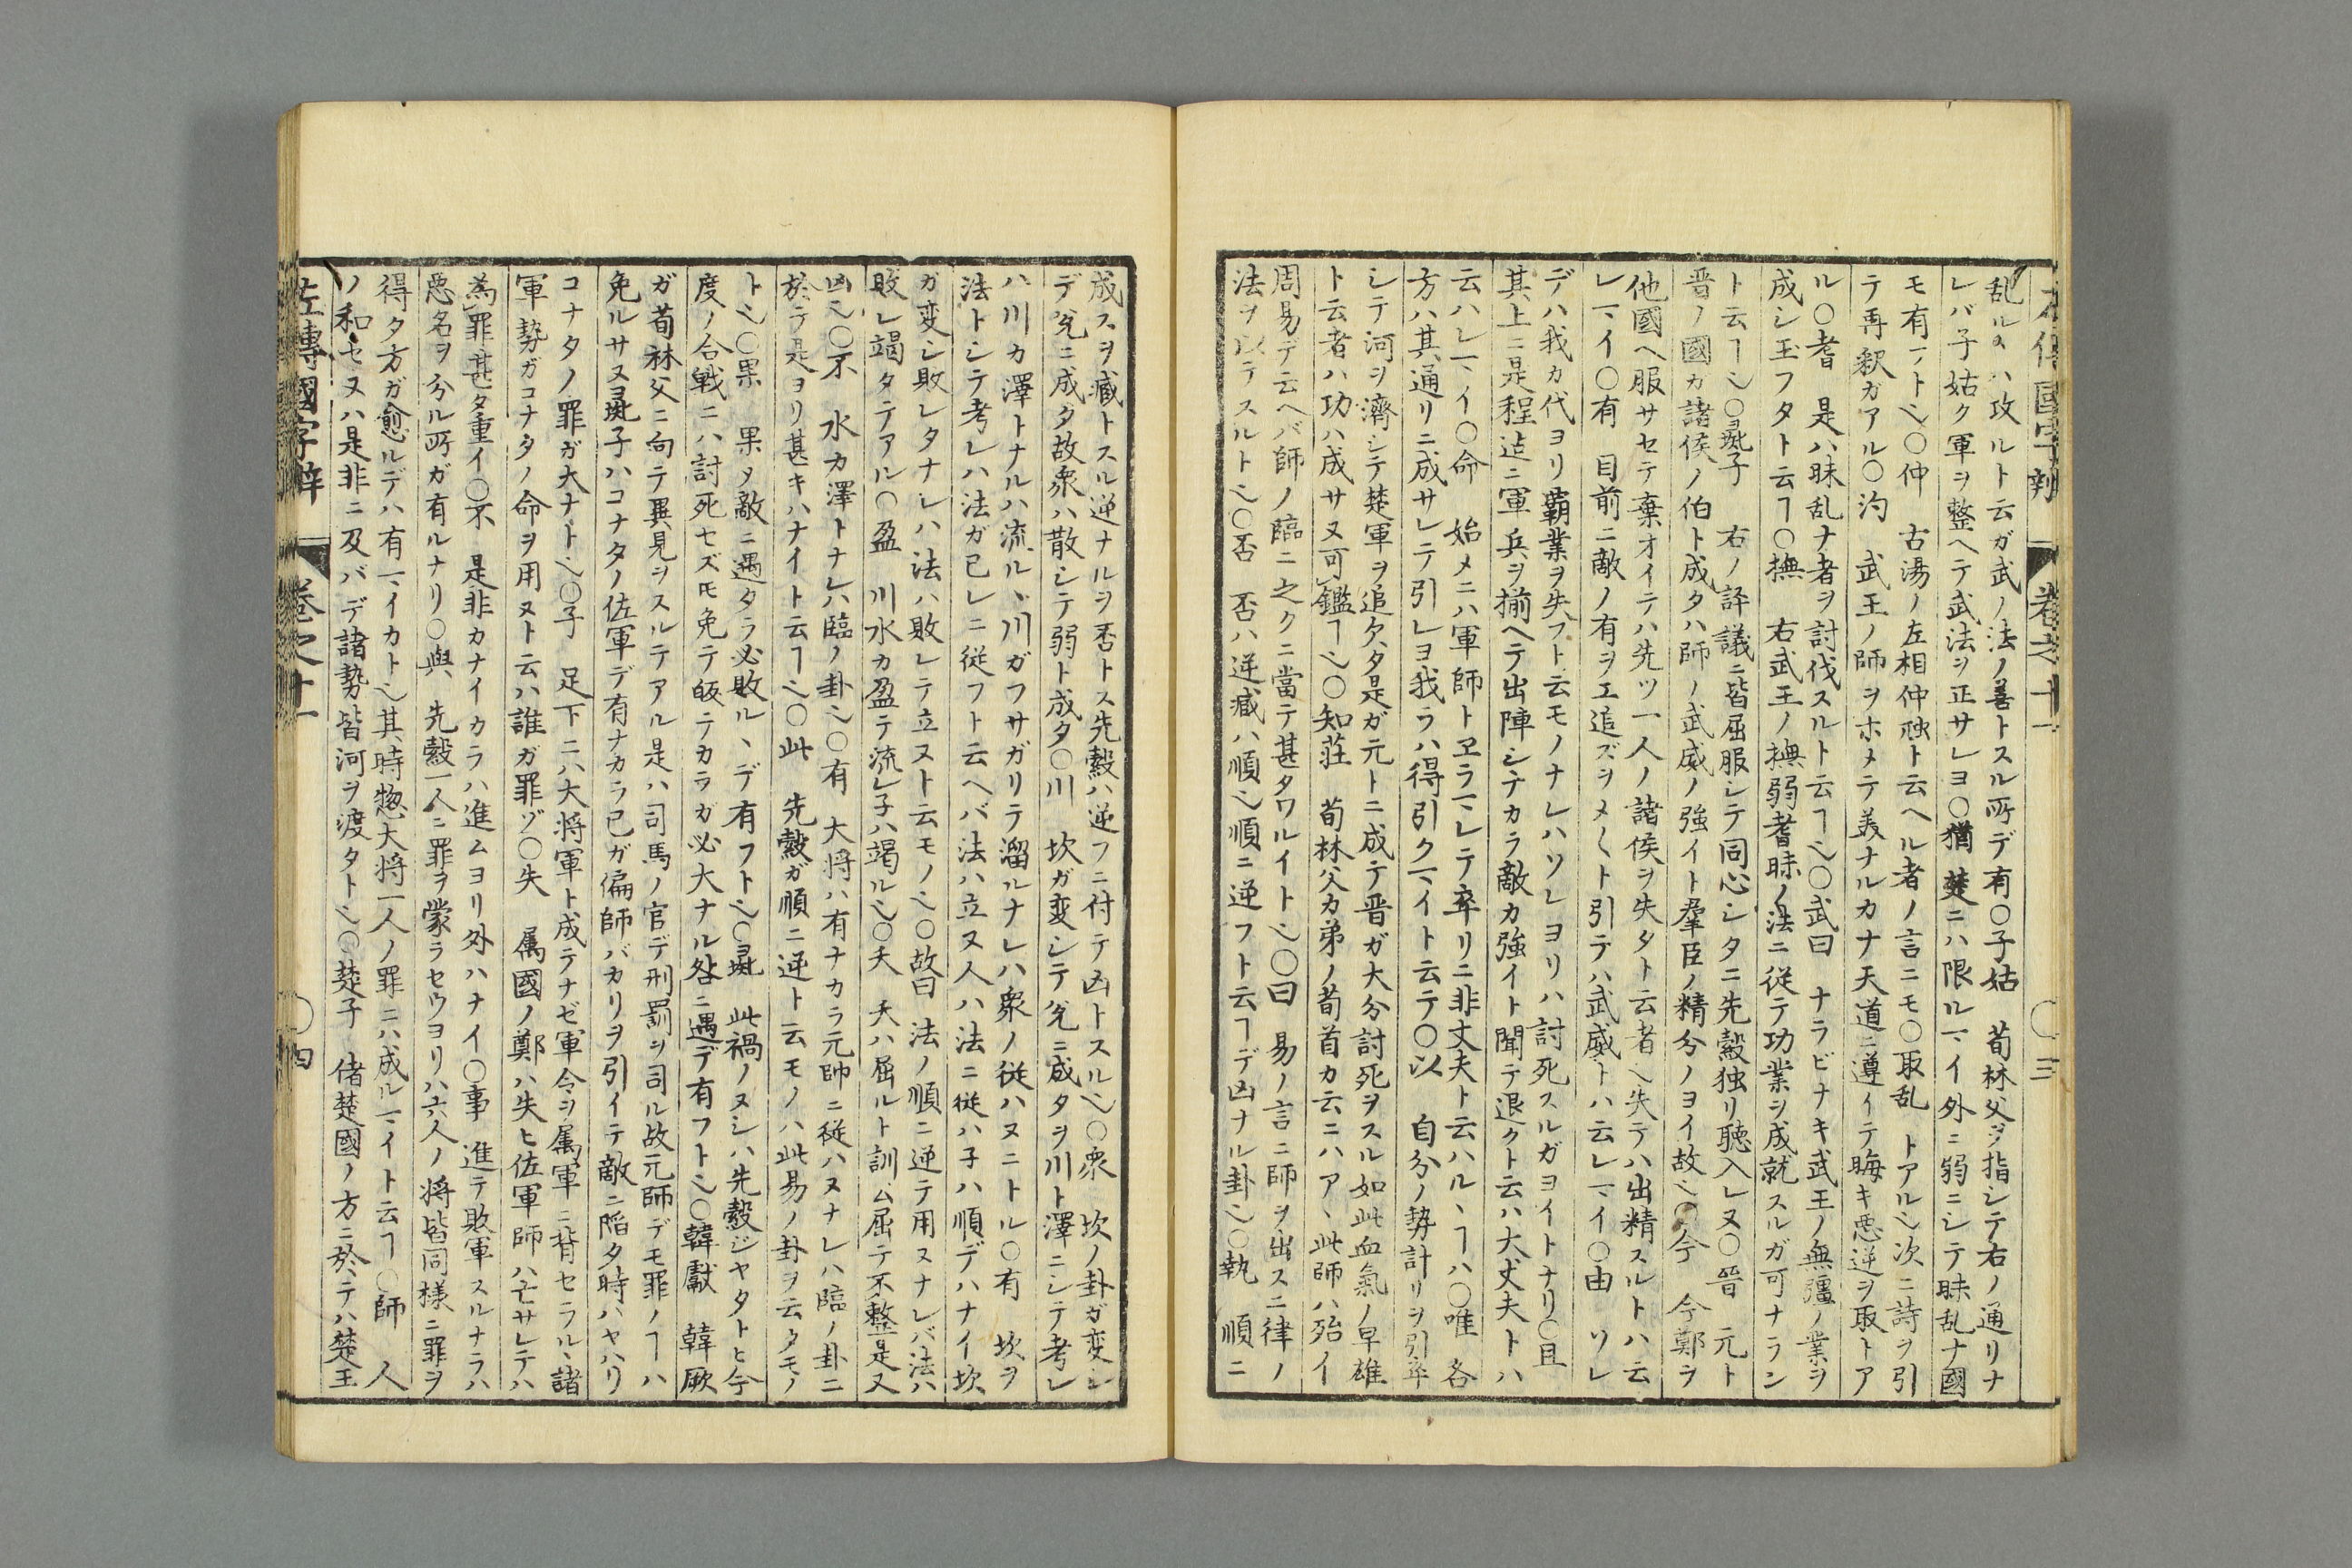 左傳國字辨 卷之十一 〇三
乱ルヽハ攻ルト云ガ武ノ法ノ善トスル所デ有〇子姑 荀林父ヲ指シテ右ノ通リナ
レバ子姑ク軍ヲ整ヘテ武法ヲ正サレヨ〇猶楚ニハ限ルマイ外ニ弱ニシテ昧乱ナ國
モ有フト也〇仲 古湯ノ左相仲虺ト云ヘル者ノ言ニモ〇取乱 トアル也次ニ詩ヲ引
テ再釈ガアル〇汋 武王ノ師ヲホメテ美ナルカナ天道ニ遵イテ晦キ悪逆ヲ取トア
ル〇耆 是ハ昧乱ナ者ヲ討伐スルト云ヿ也〇武曰 ナラビナキ武王ノ無彊ノ業ヲ
成シ玉フタト云ヿ〇撫 右武王ノ撫弱耆昧ノ法ニ従テ功業ヲ成就スルガ可ナラン
ト云ヿ也〇彘子 右ノ評議ニ皆屈服シテ同心シタニ先縠独リ聴入レヌ〇晉 元ト
晋ノ國カ諸侯ノ伯ト成タハ師ノ武威ノ強イト羣臣ノ精分ノヨイ故也〇今 今鄭ヲ
他國ヘ服サセテ棄オイテハ先ツ一人ノ諸侯ヲ失タト云者也失テハ出精スルトハ云
レマイ〇有 目前ニ敵ノ有ヲエ追ズヲメ〱ト引テハ武威トハ云レマイ〇由 ソレ
デハ我カ代ヨリ覇業ヲ失フト云モノナレハソレヨリハ討死スルガヨイトナリ〇且
其上ニ是程迠ニ軍兵ヲ揃ヘテ出陣シテカラ敵カ強イト聞テ退クト云ハ大丈夫トハ
云ハレマイ〇命 始メニハ軍師トヱラマレテ卒リニ非丈夫ト云ハルヽヿハ〇唯 各
方ハ其通リニ成サレテ引レヨ我ラハ得引クマイト云テ〇以 自分ノ勢計リヲ引卒
シテ河ヲ濟シテ楚軍ヲ追タタ是ガ元トニ成テ晋ガ大分討死ヲスル如此血氣ノ早雄
ト云者ハ功ハ成サヌ可鑑ヿ也〇知荘 荀林父カ弟ノ荀首カ云ニハアヽ此師ハ殆イ
周易デ云ヘバ師ノ臨ニ之クニ當テ甚タワルイト也〇曰 易ノ言ニ師ヲ出スニ律ノ
法ヲ以テスルト也〇否 否ハ逆臧ハ順也順ニ逆フト云ヿデ凶ナル卦也〇執 順ニ
成スヲ臧トスル逆ナルヲ否トス先縠ハ逆フニ付テ凶トスル也〇衆 坎ノ卦ガ変シ
デ兌ニ成タ故衆ハ散シテ弱ト成タ〇川 坎ガ変シテ兌ニ成タヲ川ト澤ニシテ考レ
ハ川カ澤トナルハ流ルヽ川ガフサガリテ溜ルナレハ衆ノ従ハヌニトル〇有 坎ヲ
法トシテ考レハ法ガ已レニ従フト云ヘバ法ハ立ヌ人ハ法ニ従ハ子ハ順デハナイ坎
ガ変シ敗レタナレハ法ハ敗レテ立ヌト云モノ也〇故曰 法ノ順ニ逆テ用スナレバ法ハ
敗レ竭タテアル〇盈 川水カ盈テ流レ子ハ竭ル也〇夭 夭ハ屈ルト訓ム屈テ不整是又
凶也〇不 水カ澤トナレハ臨ノ卦也〇有 大将ハ有ナカラ元帥ニ従ハヌナレハ臨ノ卦ニ
於テ是ヨリ甚キハナイト云ヿ也〇此 先縠ガ順ニ逆ト云モノハ此易ノ卦ヲ云タモノ
ト也〇果 果メ敵ニ遇タラ必敗ルヽデ有フト也〇彘 此禍ノヌシハ先縠ジヤタトヒ今
度ノ合戦ニハ討死セズ𪜈免テ皈テカラガ必大ナル咎ニ遇デ有フト也〇韓獻 韓厥
ガ荀林父ニ向テ異見ヲスルテアル是ハ司馬ノ官デ刑罰ヲ司ル故元師デモ罪ノヿハ
免ルサヌ彘子ハコナタノ佐軍デ有ナカラ已ガ偏師バカリヲ引イテ敵ニ陥タ時ハヤハリ
コナタノ罪ガ大ナト也〇子 足下ニハ大将軍ト成テナゼ軍令ヲ属軍ニ背セラルヽ諸
軍勢ガコナタノ命ヲ用ヌト云ハ誰ガ罪ゾ〇失 属國ノ鄭ハ失ヒ佐軍師ハ亡サレテハ
為罪甚タ重イ〇不 是非カナイカラハ進ムヨリ外ハナイ〇事 進テ敗軍スルナラハ
悪名ヲ分ル所ガ有ルナリ〇與 先縠一人ニ罪ヲ蒙ラセウヨリハ六人ノ将皆同様ニ罪ヲ
得タ方ガ愈ルデハ有マイカト也其時惣大将一人ノ罪ニハ成ルマイト云ヿ〇師 人
ノ和セヌハ是非ニ及バデ諸勢皆河ヲ渡タト也〇楚子 偖楚國ノ方ニ於テハ楚王
左傳國字辨 卷之十一 〇四